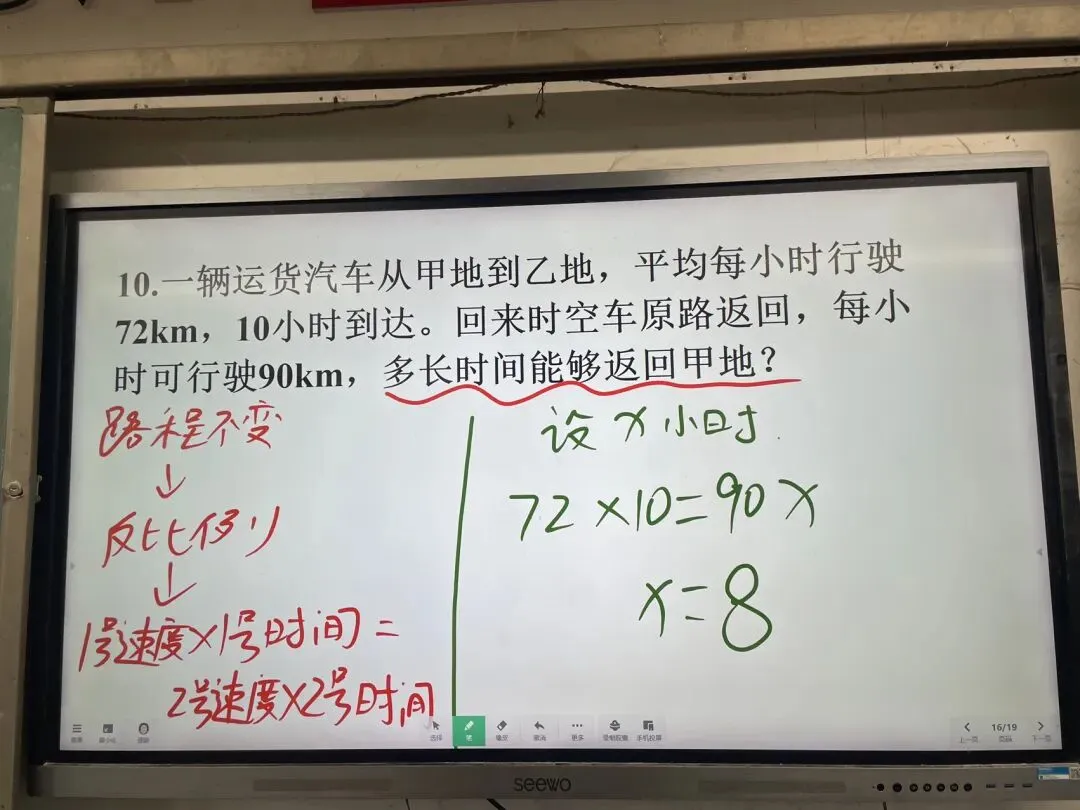 10.一辆运货汽车从甲地到乙地，平均每小时行驶
72km，10小时到达。回来时空车原路返回，每小
时可行驶90km，多长时间能够返回甲地？
路程不变
↓
反比例
↓
1号速度×1号时间=
2号速度×2号时间
设x小时
72×10=90x
x=8
选择
笔
更多
手机投屏
上一页
16/19
下一页
seewo